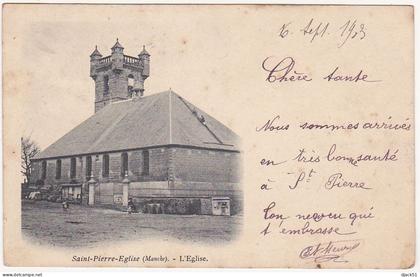 6 Sept. 1903
Chère tante
Nous sommes arrivés
en très bonne santé
à St Pierre
Ton neveu qui
t'embrasse
Saint-Pierre-Eglise (Manche). - L'Eglise.